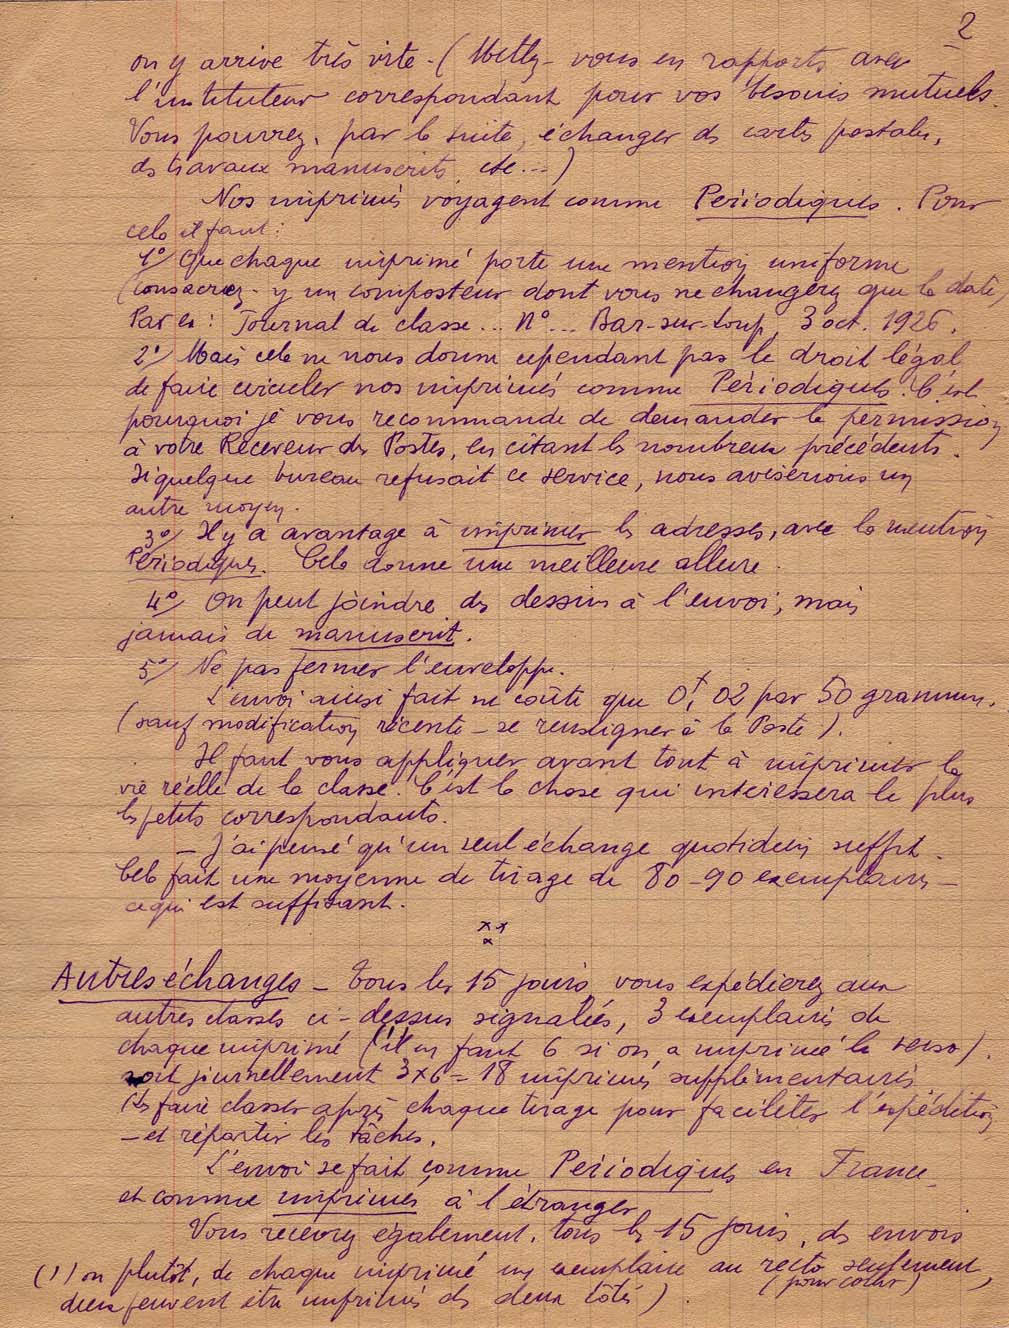 2
on y arrive très vite - (Mettez-vous en rapports avec
l'instituteur correspondant pour vos besoins mutuels.
Vous pourrez, par la suite, échanger des cartes postales,
des travaux manuscrits, etc...)
Nos imprimés voyagent comme Périodiques. Pour
cela il faut :
1°/ Que chaque imprimé porte une mention uniforme
(consacrez-y un composteur dont vous ne changerez que la date)
Par ex : Journal de classe... N°... Bar-sur-Loup, 3 oct. 1926.
2°/ Mais cela ne nous donne cependant pas le droit légal
de faire circuler nos imprimés comme Périodiques. C'est
pourquoi je vous recommande de demander la permission
à votre Receveur des Postes, en citant les nombreux précédents.
Si quelque bureau refusait ce service, nous aviserions un
autre moyen.
3°/ Il y a avantage à imprimer les adresses, avec la mention
Périodiques. Cela donne une meilleure allure.
4°/ On peut joindre des dessins à l'envoi, mais
jamais de manuscrit.
5°/ Ne pas fermer l'enveloppe.
L'envoi ainsi fait ne coûte que 0f,02 par 50 grammes.
(sauf modification récente - se renseigner à la Poste).
Il faut vous appliquer avant tout à imprimer la
vie réelle de la classe. C'est la chose qui intéressera le plus
les petits correspondants.
- J'ai pensé qu'un seul échange quotidien suffit.
Cela fait une moyenne de tirage de 80-90 exemplaires -
ce qui est suffisant.
Autres échanges - Tous les 15 jours, vous expédierez aux
autres classes ci-dessus signalées, 3 exemplaires de
chaque imprimé (1) (il en faut 6 si on a imprimé le verso).
soit journellement 3x6 = 18 imprimés supplémentaires
Les faire classer après chaque tirage pour faciliter l'expédition
- et répartir les tâches.
L'envoi se fait comme Périodiques en France
et comme imprimés à l'étranger
Vous recevrez également, tous les 15 jours, des envois
(1) ou plutôt, de chaque imprimé un exemplaire au recto seulement,
(pour coller)
deux peuvent être imprimés des deux côtés)